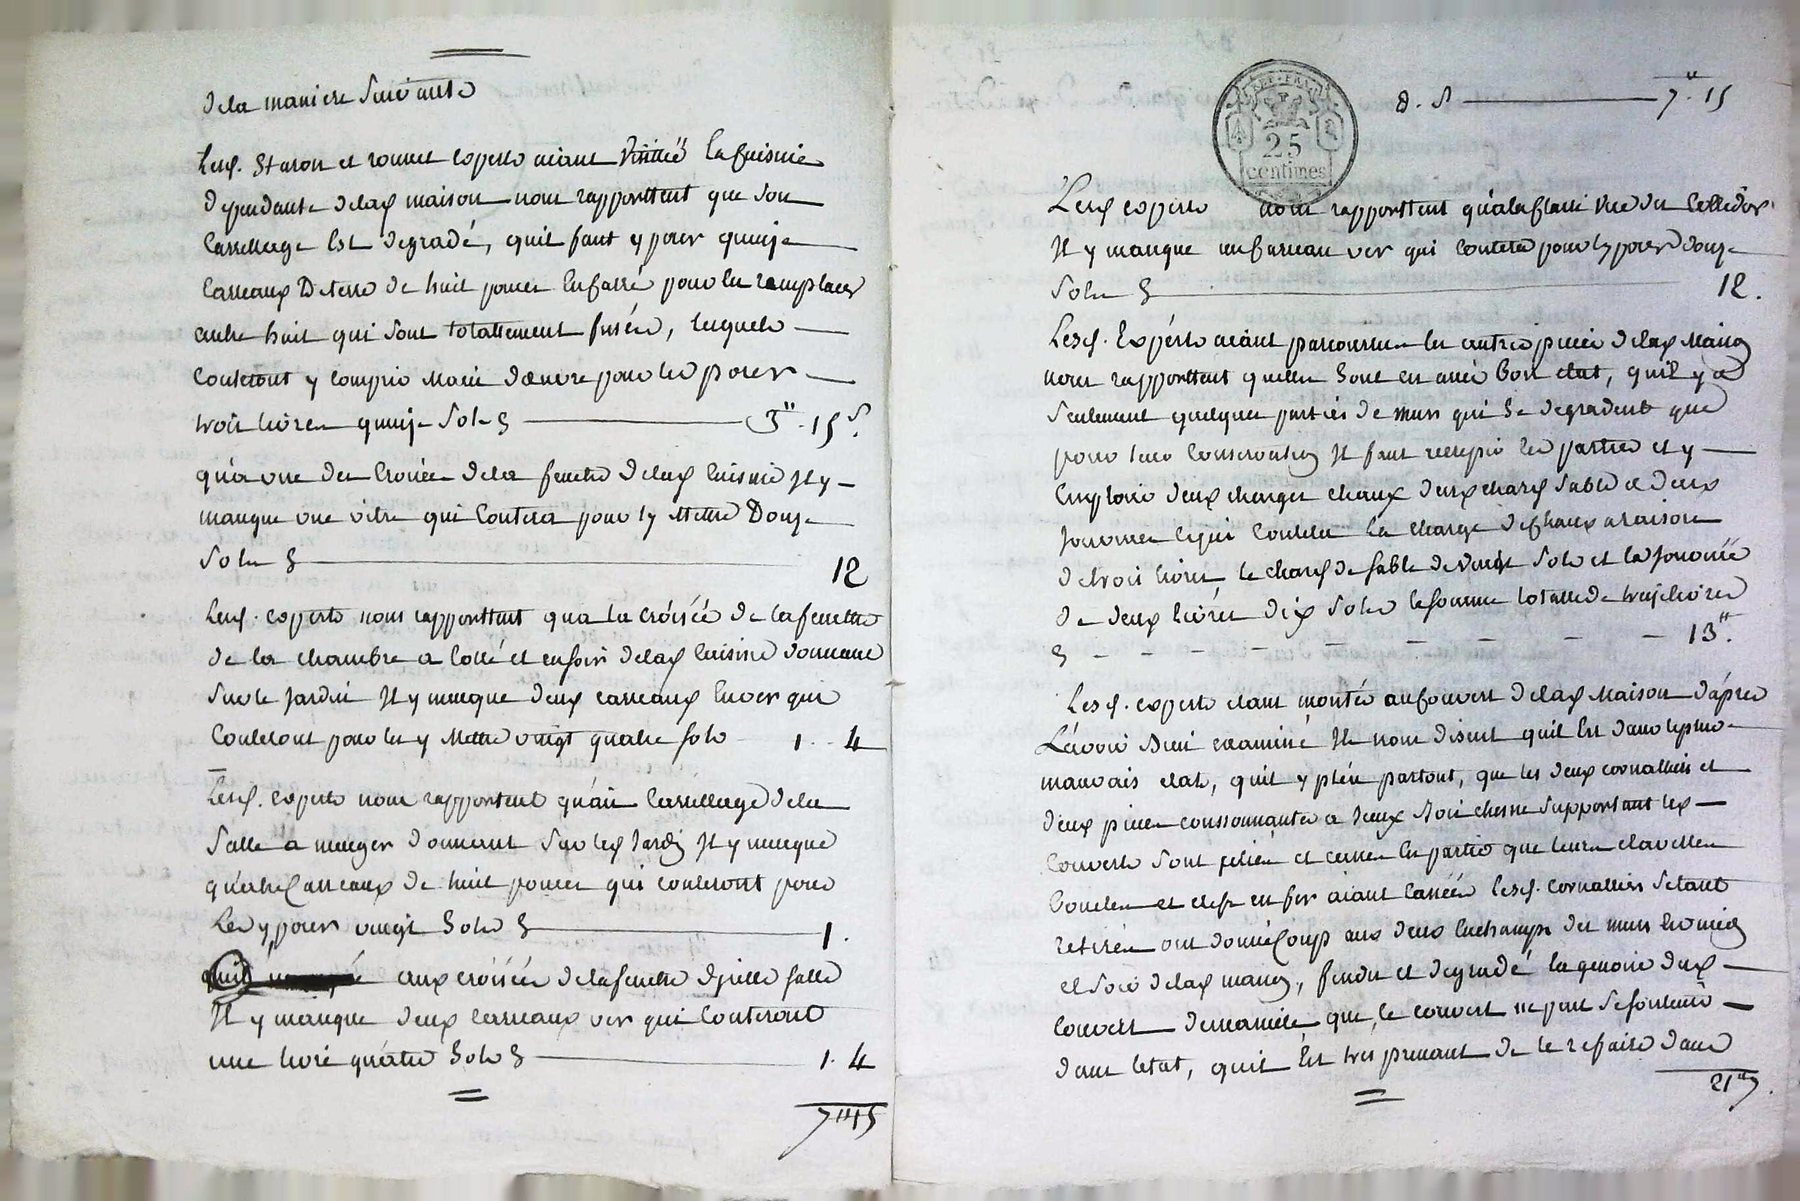 de la maniere suivante
Lesd. Staron et rouvet experts aiant visitté la Cuisine
dependante delad maison nous rapporttent que son
Carrellage Est degradé, quil faut y poser quinze
Carreaux De terre de huit pouces En Carré pour les remplacer
outre huit qui sont totallement lesquels
Couteront y compris Main dœuvre pour les poser
trois livres quinze Sols 3" 15 s.
qua une des Croisée dela fenetre delad Cuisine Il y
manque une vitre qui Coutera pour ly Mettre Douze
Sols 12
Lesd. experts nous rapporttent qua la croisée de la fenettre
de la chambre a Cotté et en soir delad Cuisine donnant
sur le Jardin Il y manque deux carreaux En ver qui
Couteront pour les y Mettre vingt quatre sols 1. 4
Lesd. experts nous rapportent qu'au Carrellage de la
Salle a manger donnant Sur led Jardin Il y manque
quatre Carreaux de huit pouces qui couteront pour
Les y poser vingt Sols 1.
aux croisées de la fenetre d'ycelle salle
Il y manque deux carreaux ver qui Couteront
une livre quatre Sols 1. 4
7" 15
RÉP. FRA.
25
centimes
7" 15
Lesd experts nous rapporttent qu'a la vue du Collidor
Il y manque un Carreau ver qui Coutera pour ly poser douze
Sols 12.
Lesd. Experts aiant parcourru les autres pieces delad Maison
nous rapporttent quelles Sont en assés bon etat, quil y a
Seulement quelques parties de murs qui Se degradent que
pour leur Conservation Il faut recrepir les parties et y
Emploier deux charges chaux deux chard sable et deux
Journées Ce qui Coutera La charge de Chaux a raison
de trois livres le chard de sable de vingt Sols et la Journée
de deux livres dix Sols la somme totalle de treize livres
13".
Lesd. experts etant montés au Couvert delad Maison d'après
L'avoir Bien examiné Ils nous disent quil Est dans le plus
mauvais etat, quil y pleu partout, que les deux cornalliers et
deux pieces a Iceux Bois chesne supportant les
Couverts sont pliées et cassées En partie que leurs clavettes
Boucles et clefs en fer aiant Cassées lesd. Cornalliers S'etant
retirés ont donné Coup aux deux Enchamps des murs
et Soir delad maison, fendu et degradé la genoise dud
Couvert de maniere que le couvert ne peut se soutenir
dans letat, quil Est tres pressant de le refaire dans
21" 7